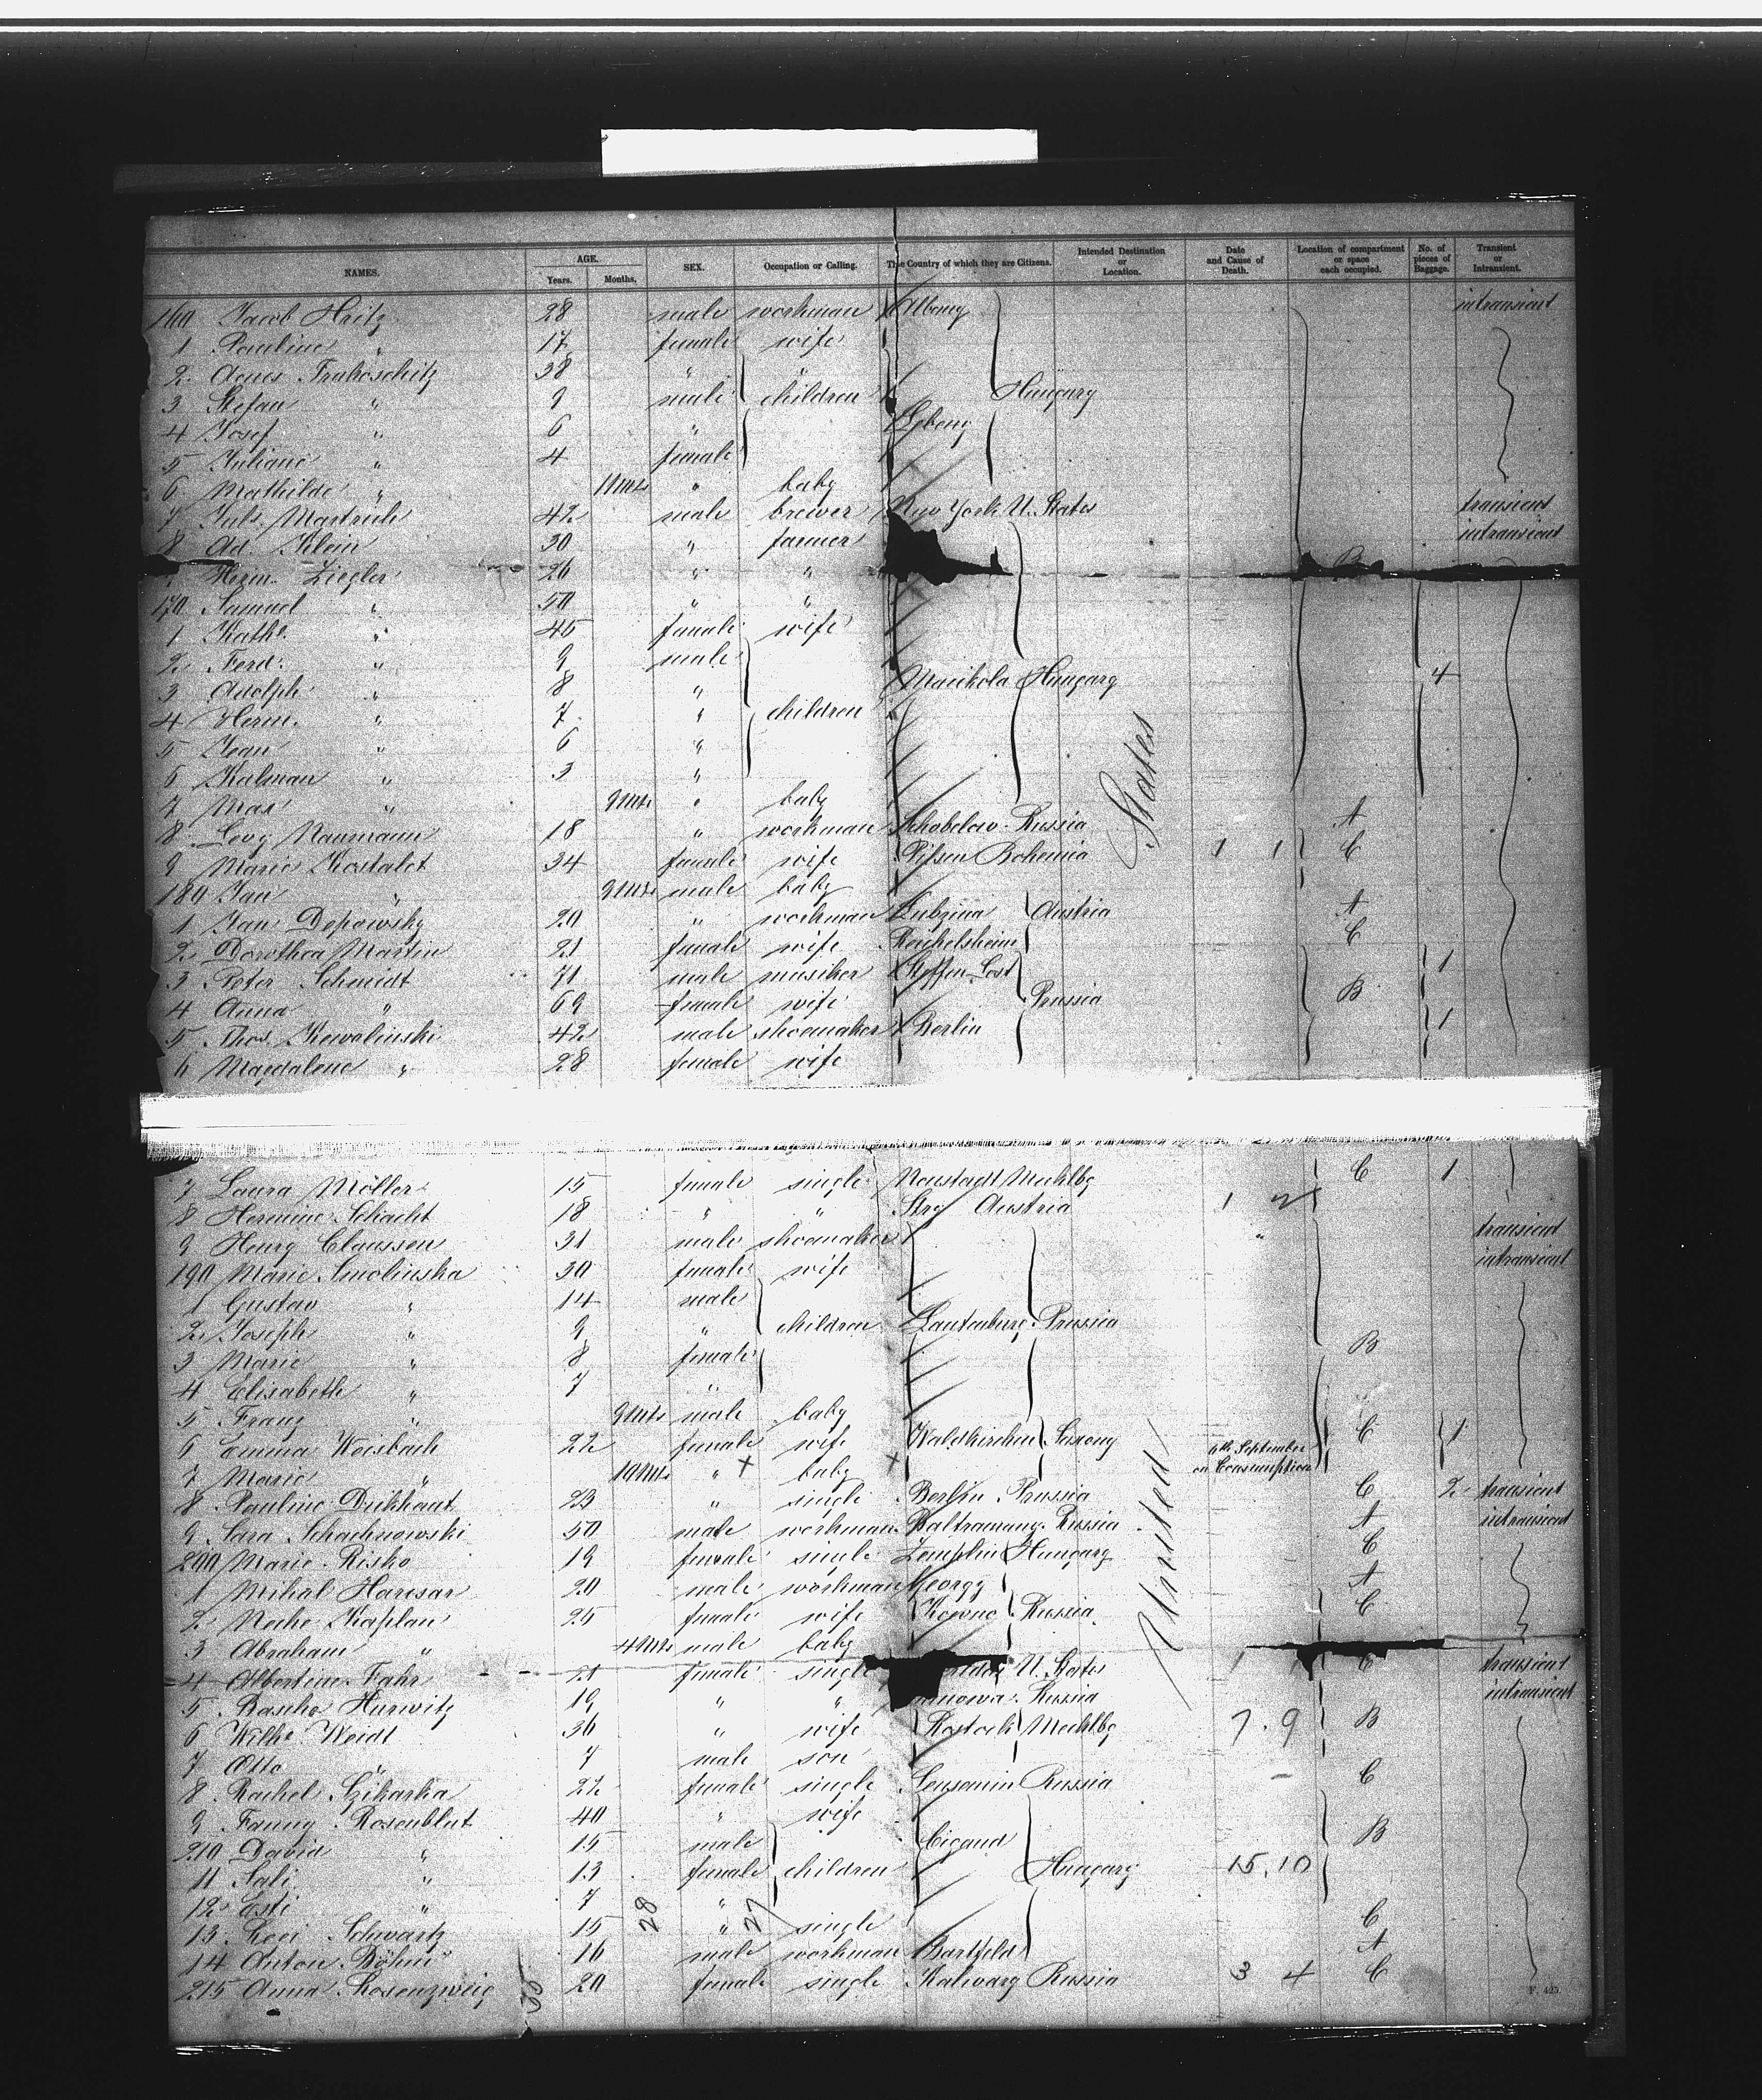 NAMES. AGE. Years. Months. SEX. Occupation or Calling. The Country of which they are Citizens. Intended Destination or Location. Date and Cause of Death. Location of compartment or space each occupied. No. of pieces of Baggage. Transient or Intransient.
160 Jacob Hritz 28 male workman intransient
1 Pauline " 17 female wife
2 Agnes 38 " "
3 Stefan " 9 male children Hungary
4 Josef " 6 "
5 Juliane " 4 female
6 Mathilde " 11 Mts " baby
7 Juls. 42 male brewer New York U. States transient
8 Ad. Klein 30 " farmer intransient
Herm. Ziegler 26 " " B
170 Samuel " 50 " "
1 Kathe. " 45 female wife
2 Ferd. " 9 male
3 Adolph " 8 " Hungary 4
4 Herm. " 7 " children
5 Jean " 6 "
6 Kalman " 3 "
7 Max " 9 Mts " baby
8 Naumann 18 " workman Russia A
9 Marie Kostalet 34 female wife Pilsen Bohemia 1 1 C
180 Jan " 9 Mts male baby
1 Jan Depowsky 20 " workman Lubzina Austria A
2 Dorothea Martin 21 female wife Reichelsheim C
3 Peter Schmidt 71 male musiker 1
4 Anna " 69 female wife Prussia B
5 Thos. Kewalinski 42 male shoemaker Berlin 1
6 Magdalene " 28 female wife
States
7 Laura Möller 15 female single Neustadt Mecklbg C 1
8 Hermine Schacht 18 " " Austria 1 2
9 Henry Claussen 31 male shoemaker transient
190 Marie Smolinska 30 female wife intransient
1 Gustav " 14 male
2 Joseph " 9 " children Lautenburg Prussia
3 Marie " 8 female B
4 Elisabeth " 7 "
5 Franz " 9 Mts male baby
6 Emma Weisbach 22 female wife Waldkirchen Saxony C 1
7 Marie " 10 Mts " baby 4th September on Consumption
8 Pauline 23 " single Berlin Prussia C 2 transient
9 Sara Schachnowski 50 male workman Russia A intransient
200 Marie Risko 19 female single Zemplin Hungary C
1 Mihal Harcsar 20 male workman Georgy A
2 Neche Kaplan 25 female wife Kowno Russia C
3 Abraham " 4 Mts male baby
4 Albertine Fahr 21 female single U. States transient
5 Rasche Hurwitz 19 " " Russia intransient
6 Wilhe Weidt 36 " wife Rostock Mecklbg 7. 9 B
7 Otto " 7 male son
8 Rachel 22 female single Russia C
9 Fanny Rosenblut 40 " wife
210 David " 15 male B
11 Sali " 13 female children Hungary 15. 10
12 Esti " 7 "
13 Schwartz 15 " single C
14 Anton Böhm 16 male workman Bartfeld A
215 Anna Rosenzweig 20 female single Kalvary Russia 3 4 C
United
28 27
F. 423.